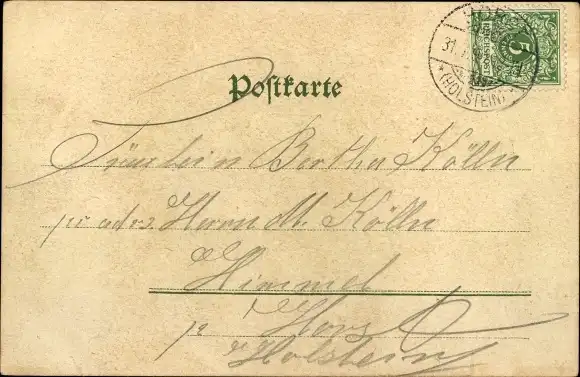 31.
(HOLSTEIN)
5
Postkarte
Fräulein Bertha Kölln
pr adr. Herrn M. Kölln
Himmel
Horst
Holstein